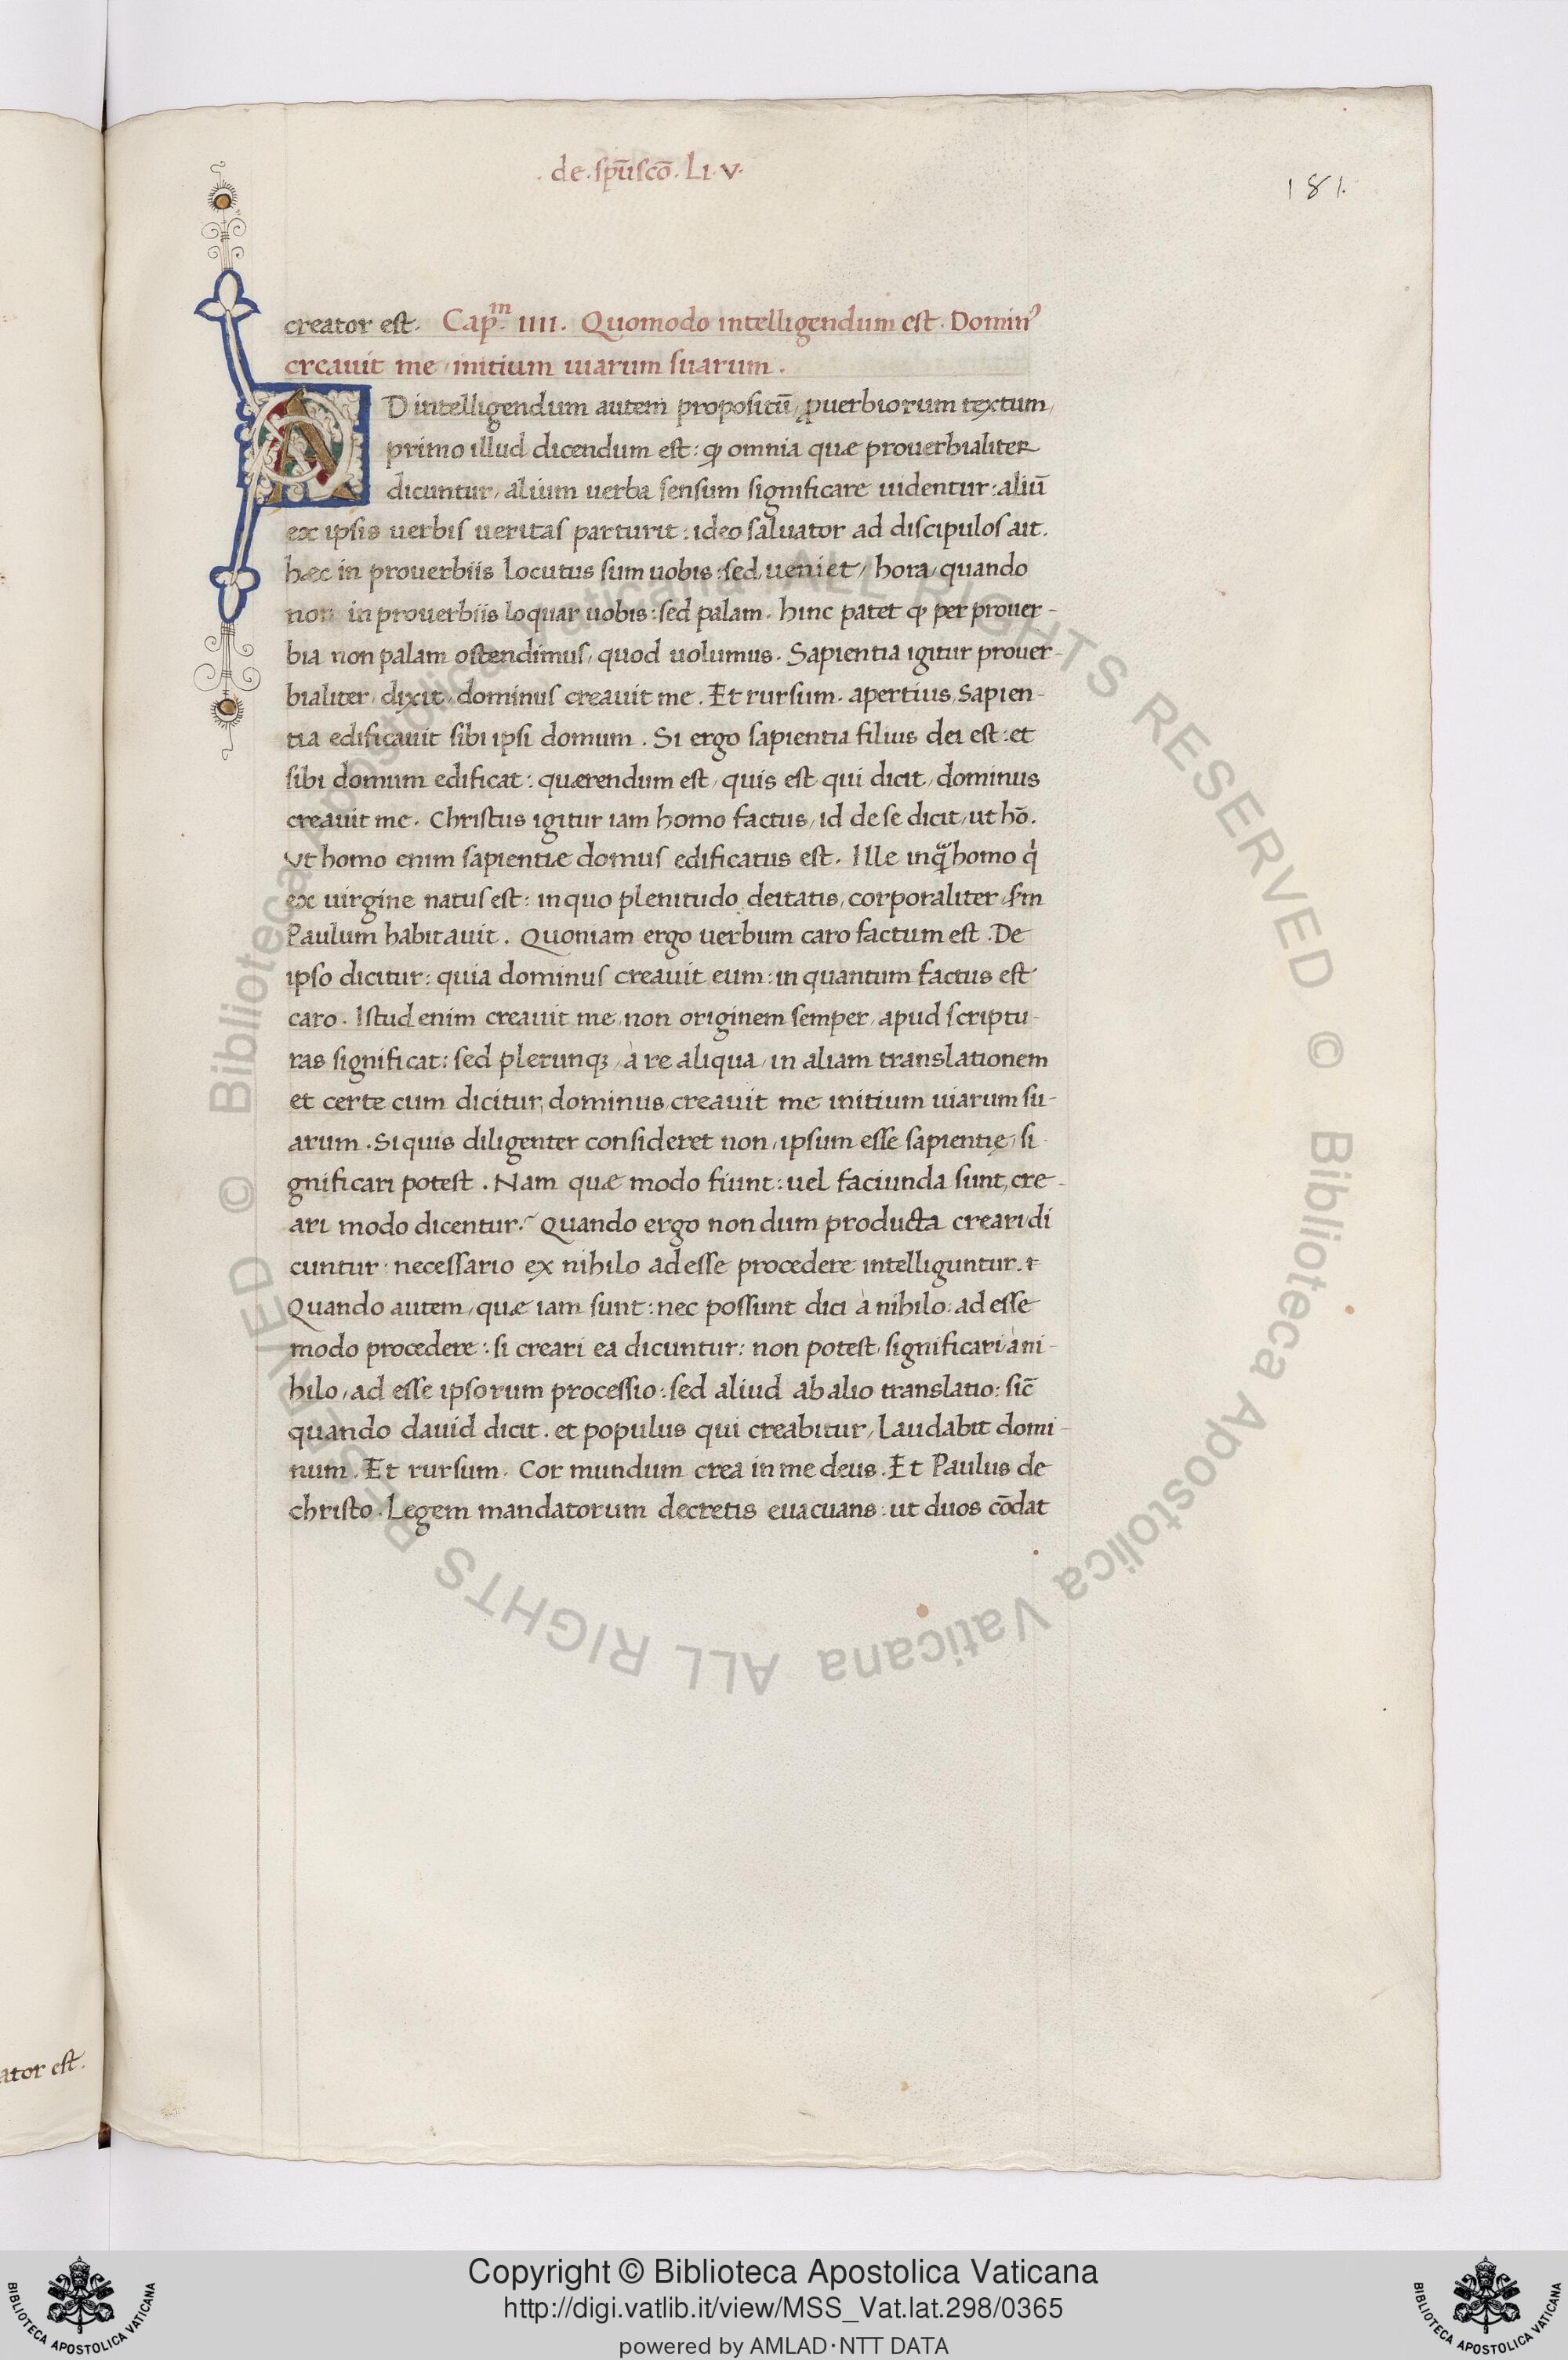 . de . sp̄uscō . Li . v .
181.
creator est. Cap.ᵐ IIII. Quomodo intelligendum est . Dominꝰ
creauit me / initium uiarum suarum .
AD intelligendum autem propositū / ꝓuerbiorum textum /
primo illud dicendum est : ꝙ omnia quæ prouerbialiter
dicuntur / alium uerba sensum significare uidentur : aliū
ex ipsis uerbis ueritas parturit : ideo saluator ad discipulos ait .
hæc in prouerbiis locutus sum uobis : sed / ueniet / hora / quando
non in prouerbiis loquar uobis : sed palam . hinc patet ꝙ per prouer-
bia non palam ostendimus / quod uolumus . Sapientia igitur prouer-
bialiter / dixit / dominus creauit me . Et rursum . apertius / Sapien-
tia edificauit sibi ipsi domum . Si ergo sapientia filius dei est : et
sibi domum edificat : quærendum est / quis est qui dicit / dominus
creauit me . Christus igitur iam homo factus / id de se dicit / ut hō .
Vt homo enim sapientiæ domus edificatus est . Ille inqͣ homo qͥ
ex uirgine natus est : in quo plenitudo deitatis / corporaliter / ẜm
Paulum habitauit . Quoniam ergo uerbum caro factum est . De
ipso dicitur : quia dominus creauit eum : in quantum factus est
caro . Istud enim creauit me / non originem semper / apud scriptu-
ras significat : sed plerunqꝫ / à re aliqua / in aliam translationem
et certe cum dicitur / dominus creauit me initium uiarum su-
arum . Si quis diligenter consideret non / ipsum esse sapientię / si-
gnificari potest . Nam quæ modo fiunt : uel faciunda sunt / cre-
ari modo dicentur . Quando ergo non dum producta creari di
cuntur : necessario ex nihilo ad esse procedere intelliguntur .
Quando autem / quæ iam sunt : nec possunt dici à nihilo : ad esse
modo procedere : si creari ea dicuntur : non potest / significari / à ni-
hilo / ad esse ipsorum processio : sed aliud ab alio translatio : sic̄
quando dauid dicit . et populus qui creabitur / Laudabit domi-
num . Et rursum . Cor mundum crea in me deus . Et Paulus de
christo . Legem mandatorum decretis euacuans : ut duos cōdat
ator est .
© Biblioteca Apostolica Vaticana ALL RIGHTS RESERVED © Biblioteca Apostolica Vaticana ALL RIGHTS RESERVED
Copyright © Biblioteca Apostolica Vaticana
http://digi.vatlib.it/view/MSS_Vat.lat.298/0365
powered by AMLAD·NTT DATA
BIBLIOTECA APOSTOLICA VATICANA
BIBLIOTECA APOSTOLICA VATICANA